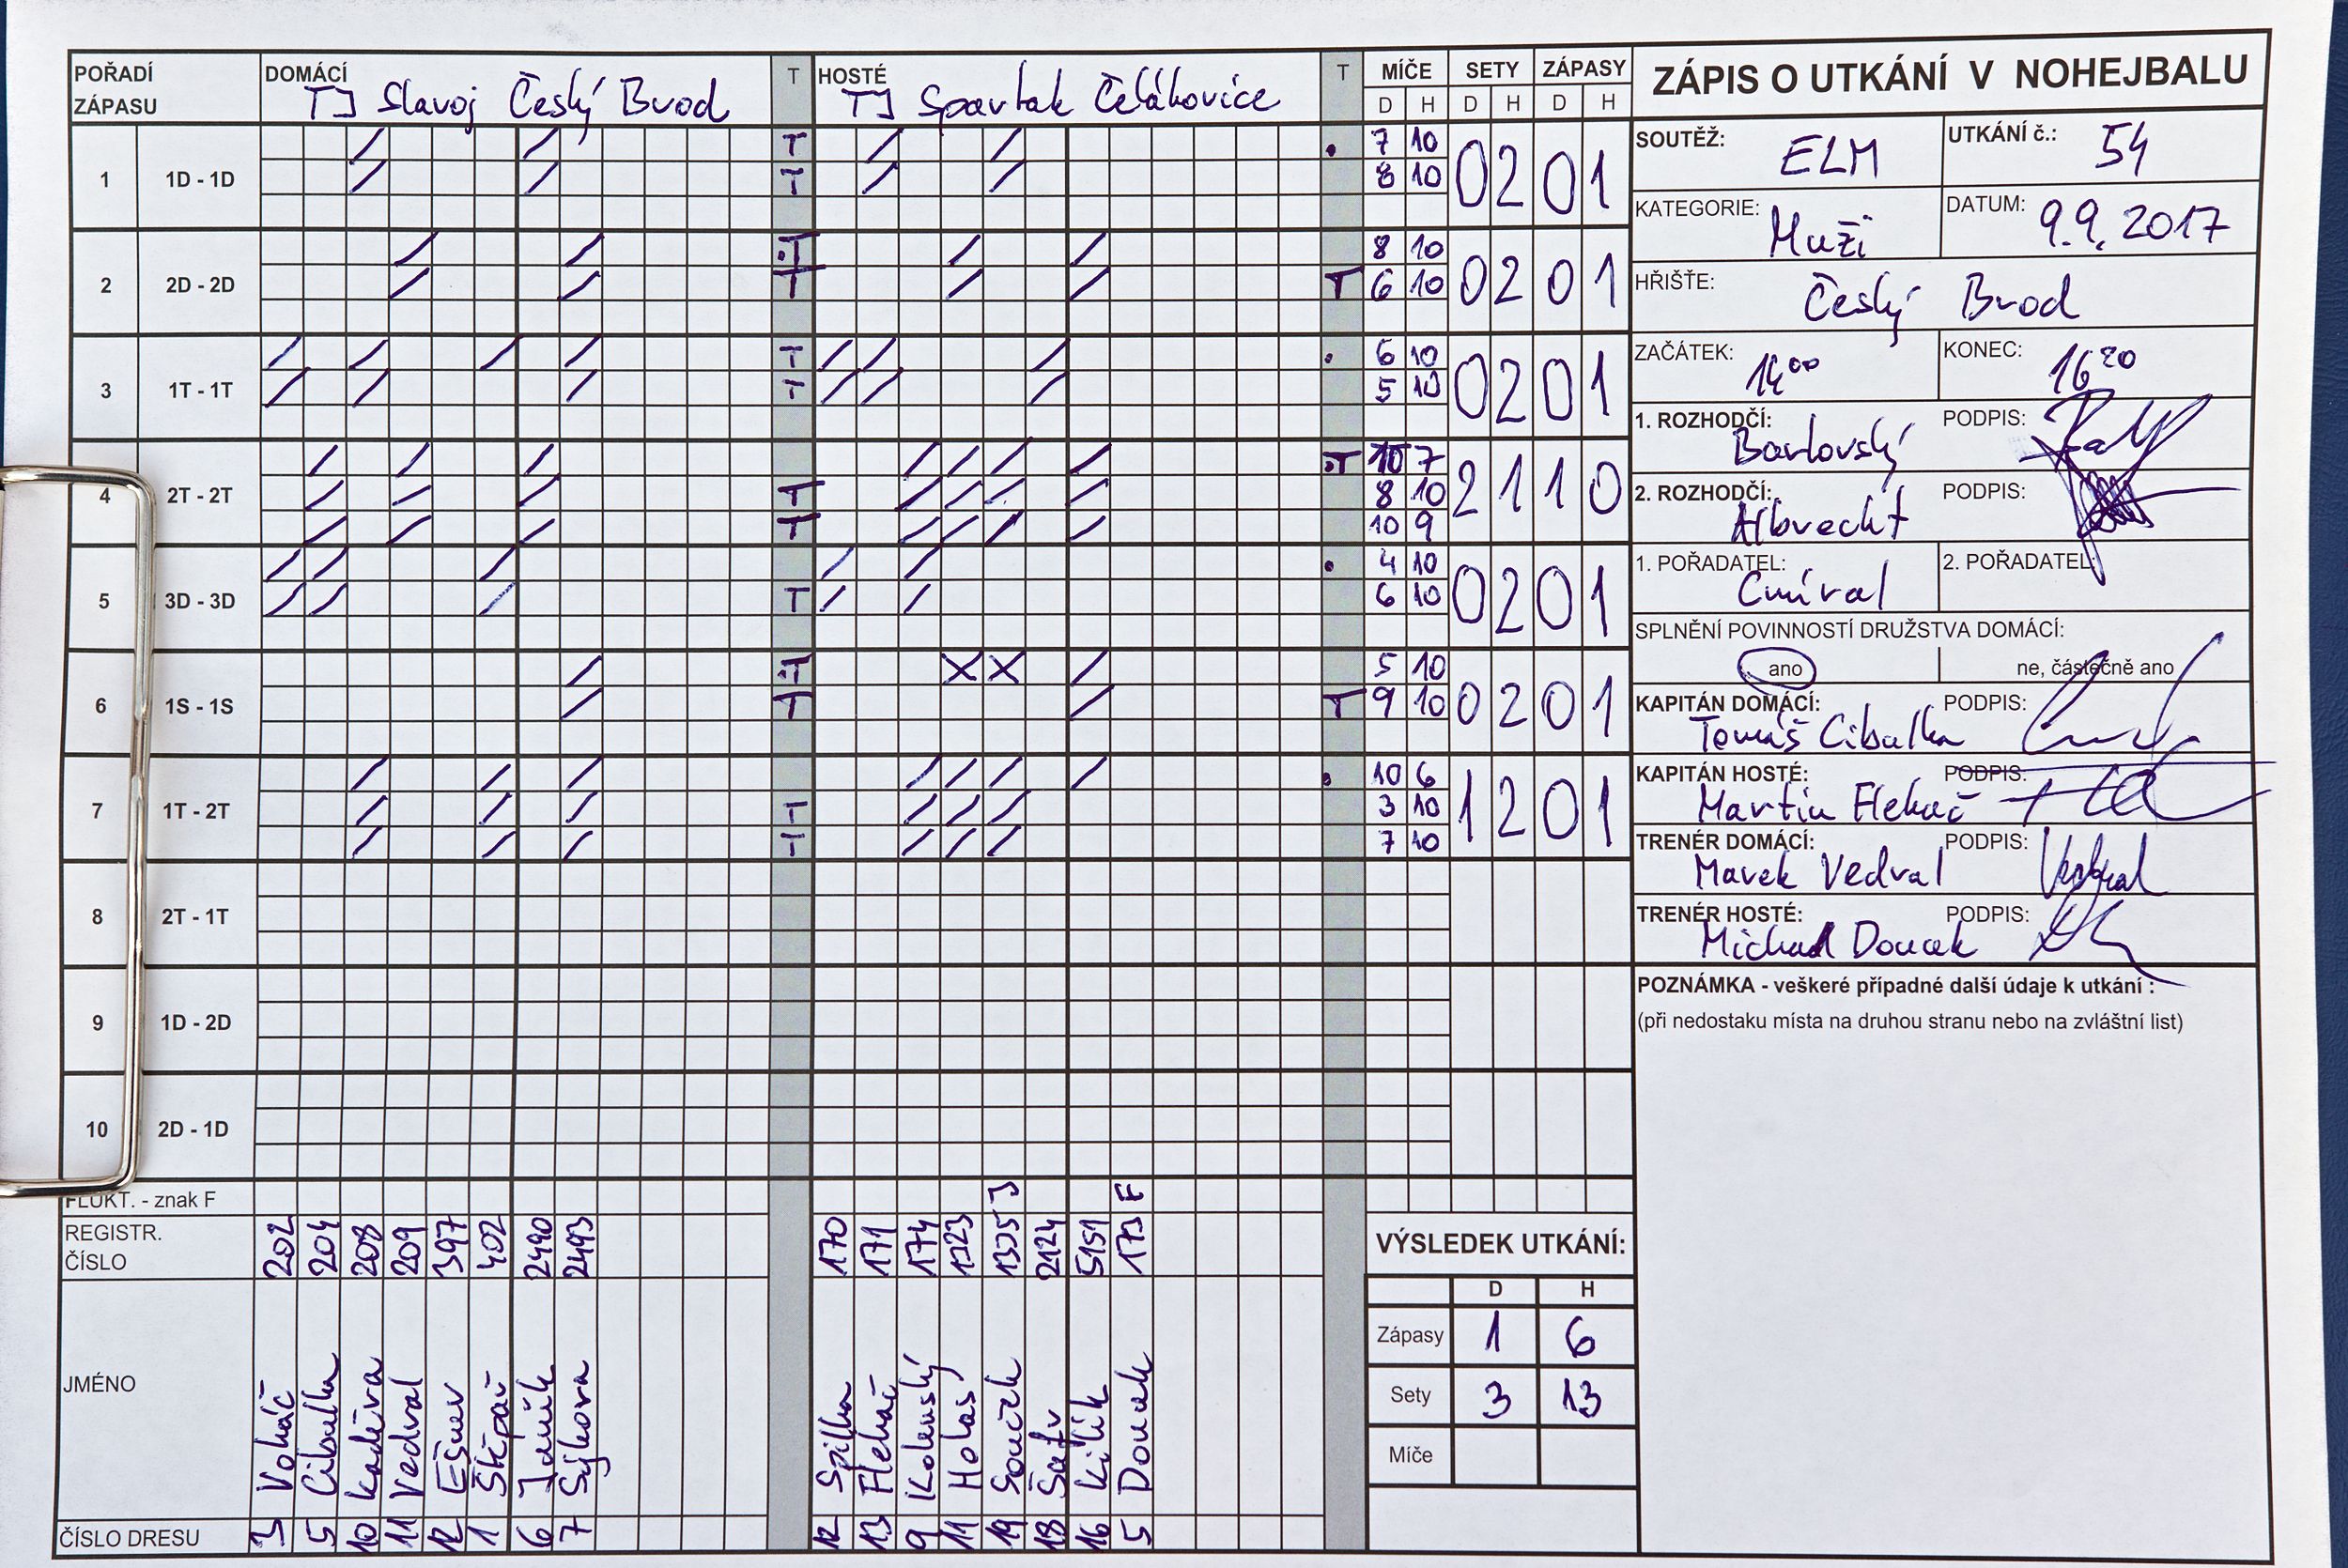 POŘADÍ ZÁPASU DOMÁCÍ TJ Slavoj Český Brod T HOSTÉ TJ Spartak Čelákovice T MÍČE SETY ZÁPASY
D H D H D H
1 1D - 1D T . 7 10 0 2 0 1
T 8 10
2 2D - 2D .T 8 10 0 2 0 1
T T 6 10
3 1T - 1T T . 6 10 0 2 0 1
T 5 10
4 2T - 2T .T 10 7 2 1 1 0
T 8 10
T 10 9
5 3D - 3D . 4 10 0 2 0 1
T 6 10
6 1S - 1S .T X X 5 10 0 2 0 1
T T 9 10
7 1T - 2T . 10 6 1 2 0 1
T 3 10
T 7 10
8 2T - 1T
9 1D - 2D
10 2D - 1D
FLUKT. - znak F J F
REGISTR. ČÍSLO 202 204 208 209 397 402 2490 2493 170 171 174 1323 1335 2124 5151 173
JMÉNO Voháč Cibulka Kadeřa Vedral Ešner Štěpař Janík Sýkora Spilka Flekač Kolenský Holas Souček Šafr Kilik Doucek
ČÍSLO DRESU 3 5 10 11 12 1 6 7 12 13 9 11 19 18 16 5
ZÁPIS O UTKÁNÍ V NOHEJBALU
SOUTĚŽ: ELM UTKÁNÍ č.: 54
KATEGORIE: Muži DATUM: 9.9.2017
HŘIŠTĚ: Český Brod
ZAČÁTEK: 14 00 KONEC: 16 20
1. ROZHODČÍ: Barlovský PODPIS:
2. ROZHODČÍ: Albrecht PODPIS:
1. POŘADATEL: Cmíral 2. POŘADATEL:
SPLNĚNÍ POVINNOSTÍ DRUŽSTVA DOMÁCÍ:
ano ne, částečně ano
KAPITÁN DOMÁCÍ: Tomáš Cibulka PODPIS:
KAPITÁN HOSTÉ: Martin Flekač PODPIS:
TRENÉR DOMÁCÍ: Marek Vedral PODPIS: Vedral
TRENÉR HOSTÉ: Michal Doucek PODPIS:
POZNÁMKA - veškeré případné další údaje k utkání :
(při nedostaku místa na druhou stranu nebo na zvláštní list)
VÝSLEDEK UTKÁNÍ:
D H
Zápasy 1 6
Sety 3 13
Míče